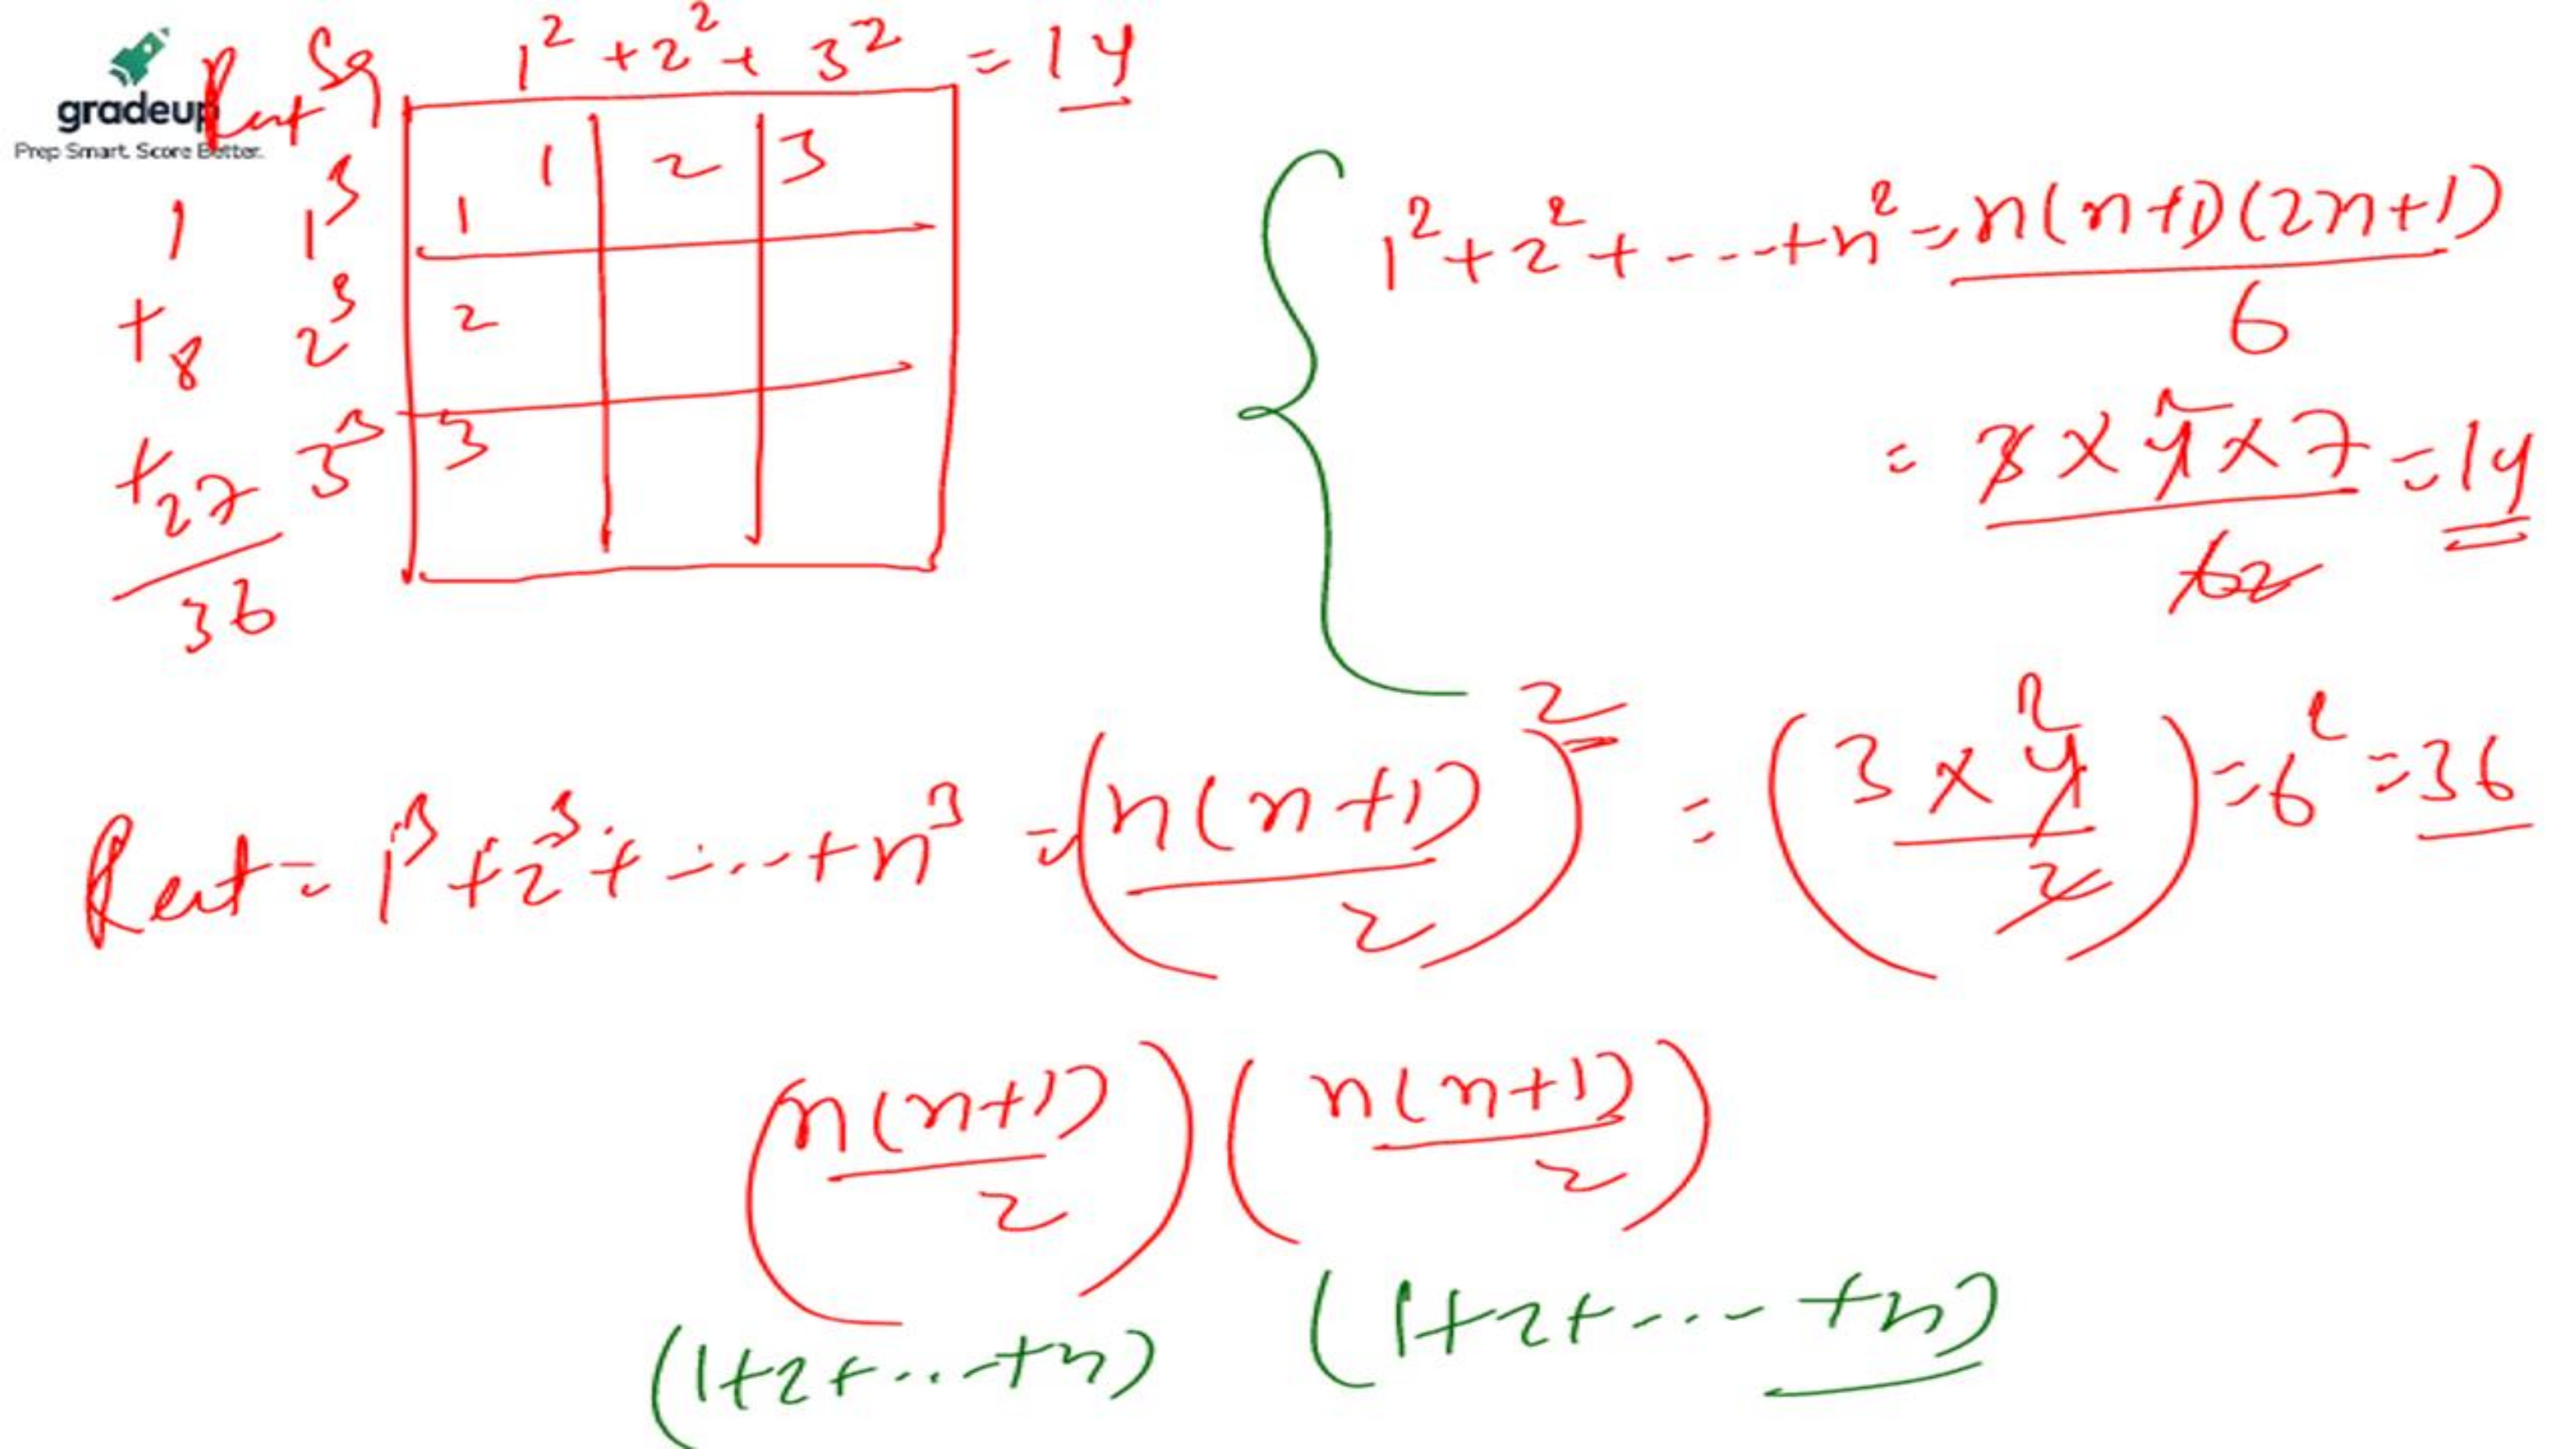 gradeup
Prep Smart. Score Better.
Rect Sq
1² + 2² + 3² = 14
1 2 3
1 1³ 1
+8 2³ 2
+27 3³ 3
36
1² + 2² + --- + n² = n(n+1)(2n+1)
6
= 3 × 4 2 × 7 = 14
6 2
Rect = 1³ + 2³ + ---- + n³ = (n(n+1)/2)² = (3 × 4 2/2) = 6² = 36
(n(n+1)/2) (n(n+1)/2)
(1+2+...+n) (1+2+----+n)